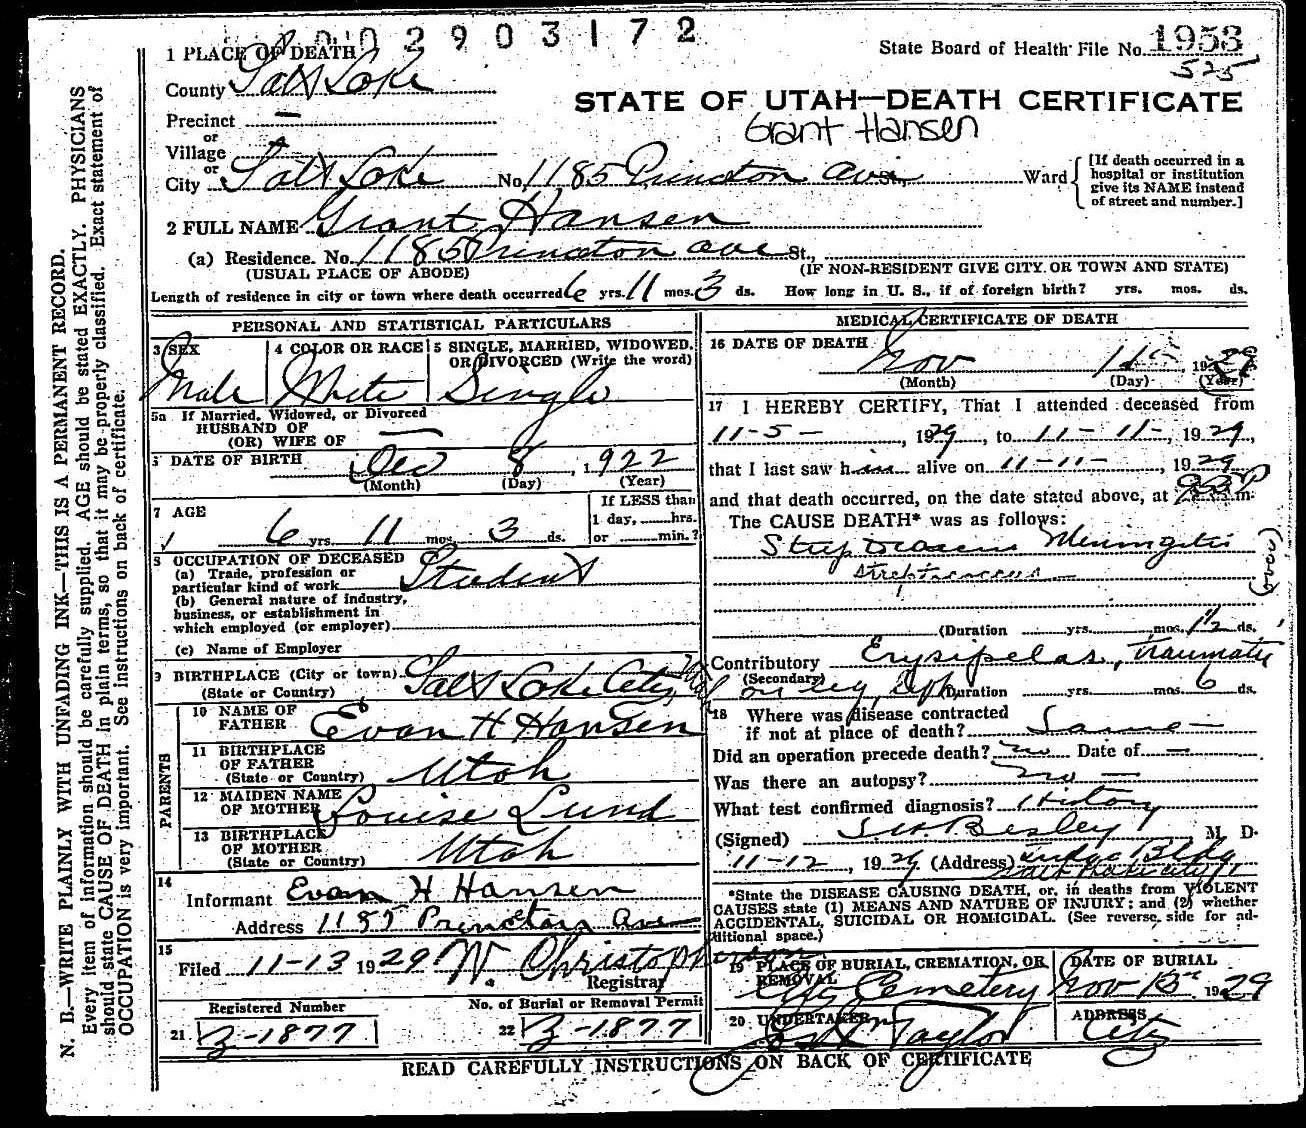 002903172
State Board of Health File No. 1953
525
1 PLACE OF DEATH
County Salt Lake
STATE OF UTAH—DEATH CERTIFICATE
Grant Hansen
Precinct —
or
Village
or
City Salt Lake No. 1185 Princton Ave St., Ward
[If death occurred in a hospital or institution give its NAME instead of street and number.]
2 FULL NAME Grant Hansen
(a) Residence. No. 1185 Princton Ave St.,
(USUAL PLACE OF ABODE) (IF NON-RESIDENT GIVE CITY OR TOWN AND STATE)
Length of residence in city or town where death occurred 6 yrs. 11 mos. 3 ds. How long in U. S., if of foreign birth? yrs. mos. ds.
PERSONAL AND STATISTICAL PARTICULARS
3 SEX
Male
4 COLOR OR RACE
White
5 SINGLE, MARRIED, WIDOWED, OR DIVORCED (Write the word)
Single
5a If Married, Widowed, or Divorced
HUSBAND OF
(OR) WIFE OF —
DATE OF BIRTH Dec 8, 1922
(Month) (Day) (Year)
7 AGE
6 yrs. 11 mos. 3 ds.
If LESS than
1 day, hrs.
or min.?
8 OCCUPATION OF DECEASED
(a) Trade, profession or
particular kind of work Student
(b) General nature of industry,
business, or establishment in
which employed (or employer)
(c) Name of Employer
9 BIRTHPLACE (City or town) Salt Lake City, Utah
(State or Country)
PARENTS
10 NAME OF
FATHER Evan H Hansen
11 BIRTHPLACE
OF FATHER
(State or Country) Utah
12 MAIDEN NAME
OF MOTHER Louise Lund
13 BIRTHPLACE
OF MOTHER
(State or Country) Utah
14
Informant Evan H Hansen
Address 1185 Princton Ave
15
Filed 11-13 1929 W. Christopherson
Registrar
Registered Number
21 B-1877
No. of Burial or Removal Permit
22 B-1877
MEDICAL CERTIFICATE OF DEATH
16 DATE OF DEATH
Nov 11, 1929
(Month) (Day) (Year)
17 I HEREBY CERTIFY, That I attended deceased from
11-5-, 1929, to 11-11-, 1929,
that I last saw him alive on 11-11-, 1929
and that death occurred, on the date stated above, at m.
The CAUSE DEATH* was as follows:
Streptococcus Meningitis
Streptococcus
(over)
(Duration yrs. mos. 1½ ds.
Contributory Erysipelas, Traumatic
(Secondary) on leg, (Duration yrs. mos. 6 ds.
18 Where was disease contracted
if not at place of death? Same —
Did an operation precede death? no Date of —
Was there an autopsy? no —
What test confirmed diagnosis? History
(Signed) Besley M. D.
11-12, 1929 (Address) Judge Bldg
Salt Lake City
*State the DISEASE CAUSING DEATH, or, in deaths from VIOLENT
CAUSES state (1) MEANS AND NATURE OF INJURY; and (2) whether
ACCIDENTAL, SUICIDAL OR HOMICIDAL. (See reverse side for ad-
ditional space.)
19 PLACE OF BURIAL, CREMATION, OR
REMOVAL
City Cemetery
DATE OF BURIAL
Nov 13 1929
20 UNDERTAKER
Taylor
ADDRESS
City
READ CAREFULLY INSTRUCTIONS ON BACK OF CERTIFICATE
N. B.—WRITE PLAINLY WITH UNFADING INK—THIS IS A PERMANENT RECORD.
Every item of information should be carefully supplied. AGE should be stated EXACTLY. PHYSICIANS
should state CAUSE OF DEATH in plain terms, so that it may be properly classified. Exact statement of
OCCUPATION is very important. See instructions on back of certificate.